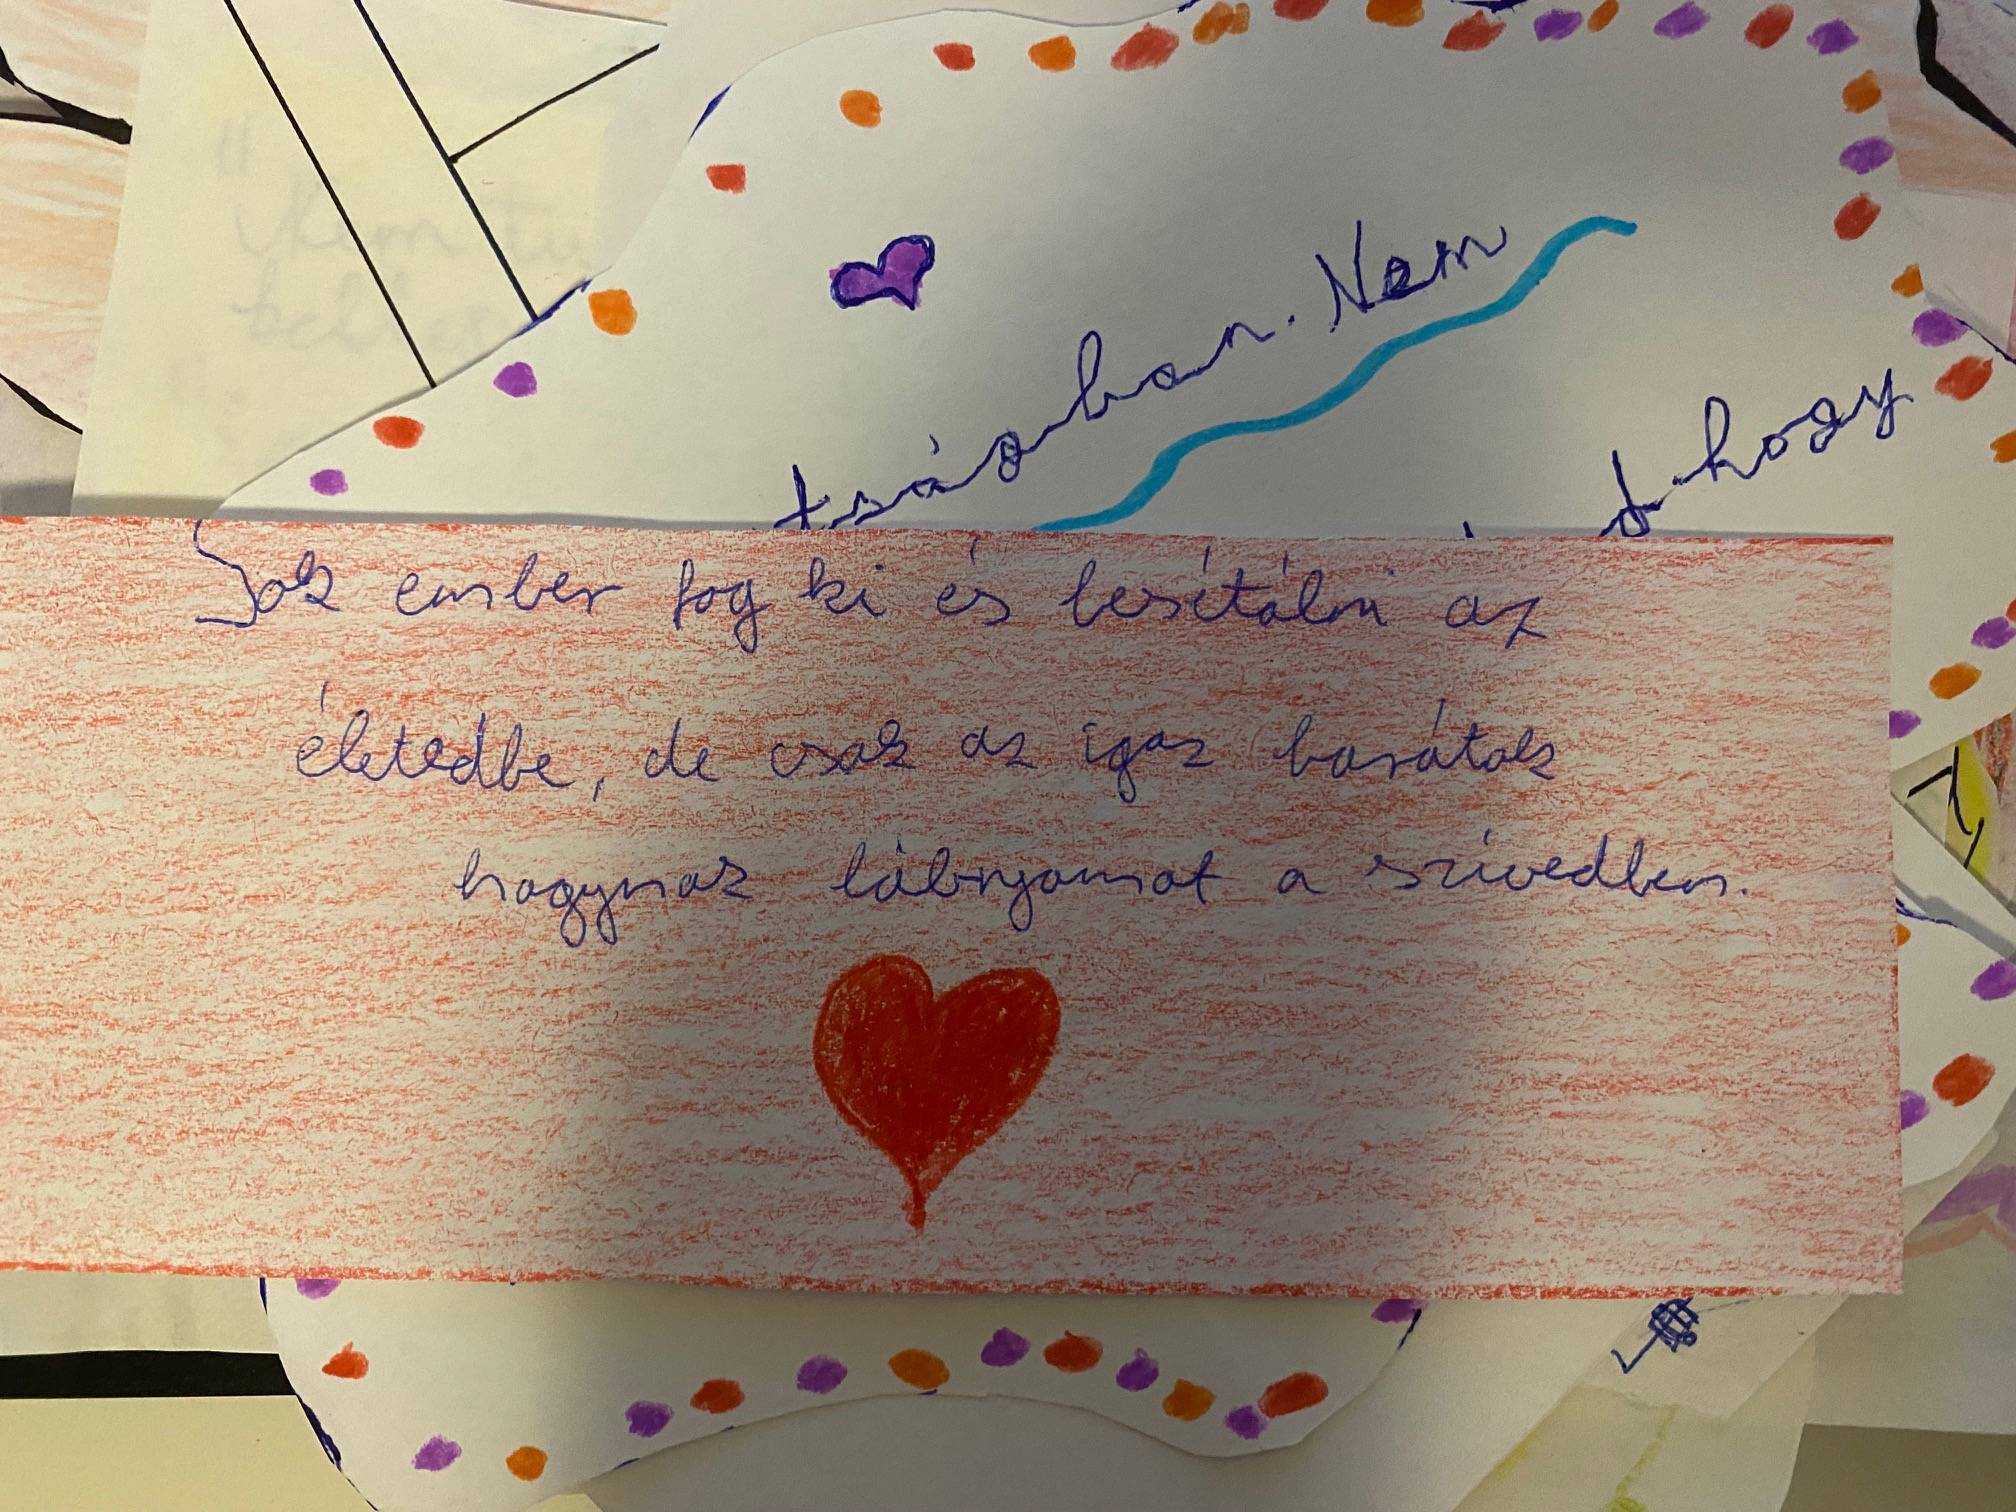 Nem
hogy
Sok ember fog ki és besétálni az
életedbe, de csak az igaz barátok
hagynak lábnyomot a szívedben.